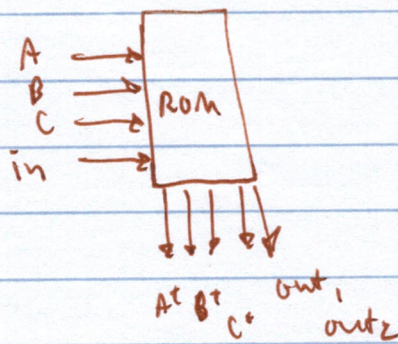 A
B
C
in
ROM
A⁺ B⁺ C⁺ out₁ out₂